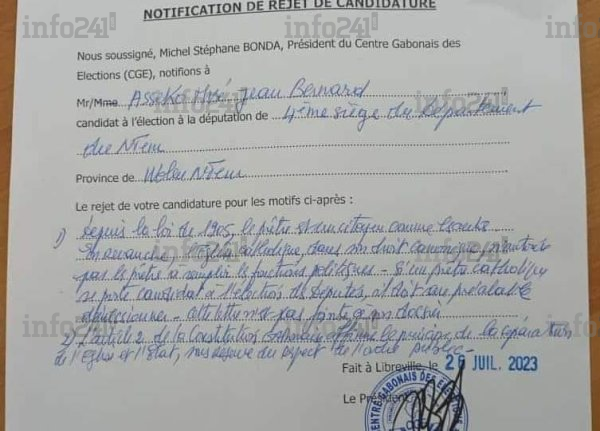 NOTIFICATION DE REJET DE CANDIDATURE
Nous soussigné, Michel Stéphane BONDA, Président du Centre Gabonais des
Elections (CGE), notifions à
Mr/Mme Asseko Mvé Jean Bernard
candidat à l'élection à la députation de 4ème siège du Département
du Ntem
Province de Woleu Ntem
Le rejet de votre candidature pour les motifs ci-après :
1) Depuis la loi de 1905, le prêtre est un citoyen comme
En revanche, l'Eglise catholique, dans son droit canonique
pas le prêtre à remplir les fonctions politiques - Si un prêtre catholique
se porte candidat à l'élection des Députés, il doit au préalable
démissionner -
2) L'article 2 de la Constitution le principe de la séparation
de l'Eglise et l'Etat, sous réserve du respect de l'ordre public -
Fait à Libreville, le 26 JUIL. 2023
Le Président
CENTRE GABONAIS DES ELECTIONS
info241